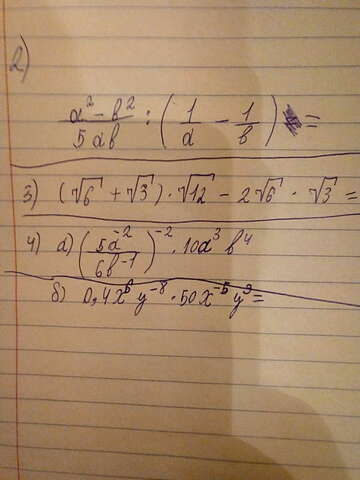 2)
(a² - b²)/(5ab) : (1/a - 1/b) =
3) (√6 + √3) · √12 - 2√6 · √3 =
4) a) (5a⁻²/6b⁻¹)⁻² · 10a³b⁴
б) 0,4x⁶y⁻⁸ · 50x⁻⁵y⁹=